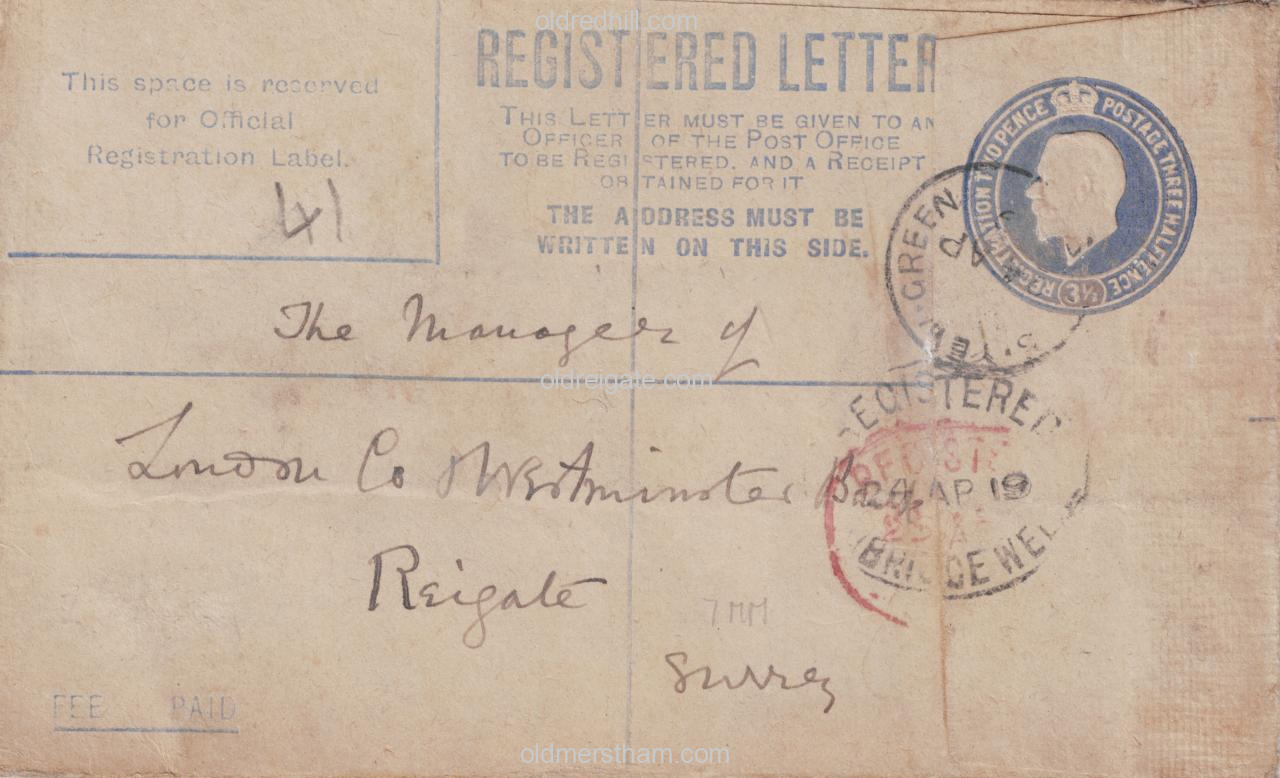 oldredhill.com
REGISTERED LETTER
This space is reserved
for Official
Registration Label.
THIS LETTER MUST BE GIVEN TO AN
OFFICER OF THE POST OFFICE
TO BE REGISTERED, AND A RECEIPT
OBTAINED FOR IT
THE ADDRESS MUST BE
WRITTEN ON THIS SIDE.
REGISTRATION TWO PENCE POSTAGE THREE HALFPENCE
3½
41
GREEN
AP
The Manager of
oldreigate.com
REGISTERED
London Co Westminster Bank
24 AP 19
BRIDGE WE
Reigate
7 MM
Surrey
FEE PAID
oldmerstham.com